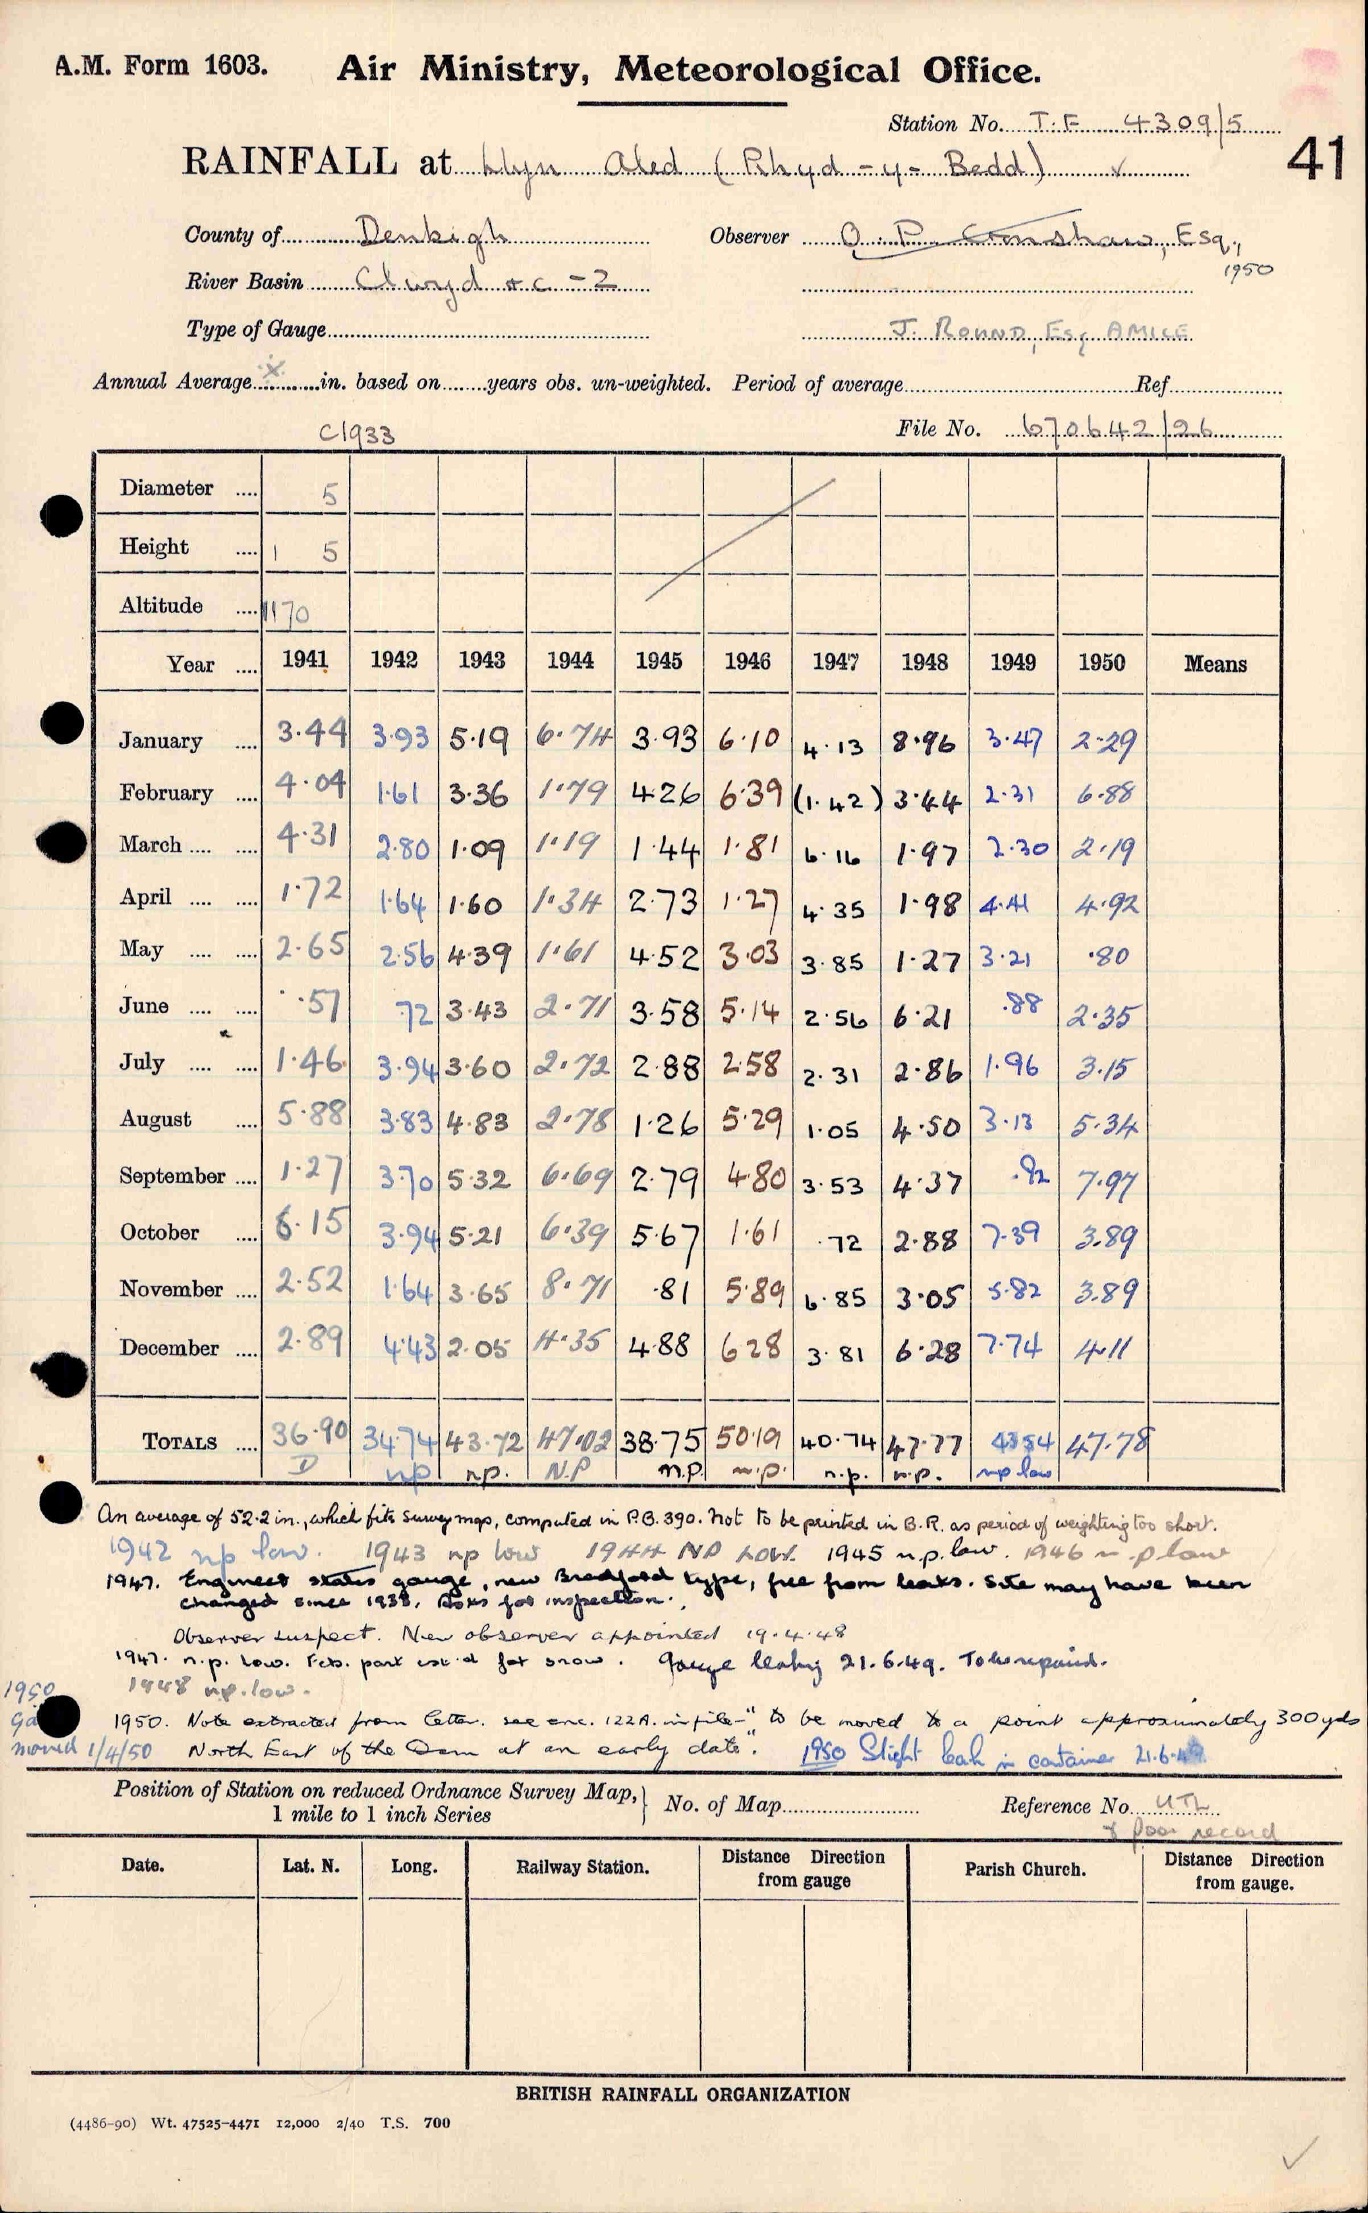 A.M. Form 1603. Air Ministry, Meteorological Office.
Station No. T.F 4309/5
41
RAINFALL at Llyn Aled (Rhyd-y-Bedd) ✓
County of Denbigh Observer O. P. Cronshaw, Esq.,
River Basin Clwyd &c -2 1950
Type of Gauge J. ROUND, Esq AMICE
Annual Average in. based on years obs. un-weighted. Period of average Ref
File No. 670642/26
C1933
Diameter .... 5
Height .... 1 5
Altitude .... 1170
Year .... 1941 1942 1943 1944 1945 1946 1947 1948 1949 1950 Means
January .... 3.44 3.93 5.19 6.74 3.93 6.10 4.13 8.96 3.47 2.29
February .... 4.04 1.61 3.36 1.79 4.26 6.39 (1.42) 3.44 2.31 6.88
March .... .... 4.31 2.80 1.09 1.19 1.44 1.81 6.16 1.97 2.30 2.19
April .... .... 1.72 1.64 1.60 1.34 2.73 1.27 4.35 1.98 4.41 4.92
May .... .... 2.65 2.56 4.39 1.61 4.52 3.03 3.85 1.27 3.21 .80
June .... .... .57 .72 3.43 2.71 3.58 5.14 2.56 6.21 .88 2.35
July .... .... 1.46 3.94 3.60 2.72 2.88 2.58 2.31 2.86 1.96 3.15
August .... 5.88 3.83 4.83 2.78 1.26 5.29 1.05 4.50 3.13 5.34
September .... 1.27 3.70 5.32 6.69 2.79 4.80 3.53 4.37 .92 7.97
October .... 6.15 3.94 5.21 6.39 5.67 1.61 .72 2.88 7.39 3.89
November .... 2.52 1.64 3.65 8.71 .81 5.89 6.85 3.05 5.82 3.89
December .... 2.89 4.43 2.05 4.35 4.88 6.28 3.81 6.28 7.74 4.11
TOTALS .... 36.90 34.74 43.72 47.02 38.75 50.19 40.74 47.77 43.54 47.78
D np np. N.P n.p. n.p. n.p. n.p. np low
An average of 52.2 in., which fits survey maps, computed in P.B. 390. Not to be printed in B.R. as period of weighting too short.
1942 np low. 1943 np low 1944 NP LOW. 1945 n.p. low. 1946 n.p low
1947. Engineer states gauge, new Bradford type, free from leaks. Site may have been
changed since 1938. Asks for inspection.
Observer suspect. New observer appointed 19.4.48
1947. n.p. low. Feb. part est'd for snow. Gauge leaking 21.6.49. To be repaired.
1948 np. low.
1950 moved 1/4/50
1950. Note extracted from letter. see enc. 122A. in file - "to be moved to a point approximately 300 yds
North East of the Dam at an early date". 1950 Slight leak in container 21.6.49
Position of Station on reduced Ordnance Survey Map, 1 mile to 1 inch Series No. of Map Reference No. UTL
& poor record
Date. Lat. N. Long. Railway Station. Distance Direction from gauge Parish Church. Distance Direction from gauge.
BRITISH RAINFALL ORGANIZATION
(4486-90) Wt. 47525-4471 12,000 2/40 T.S. 700